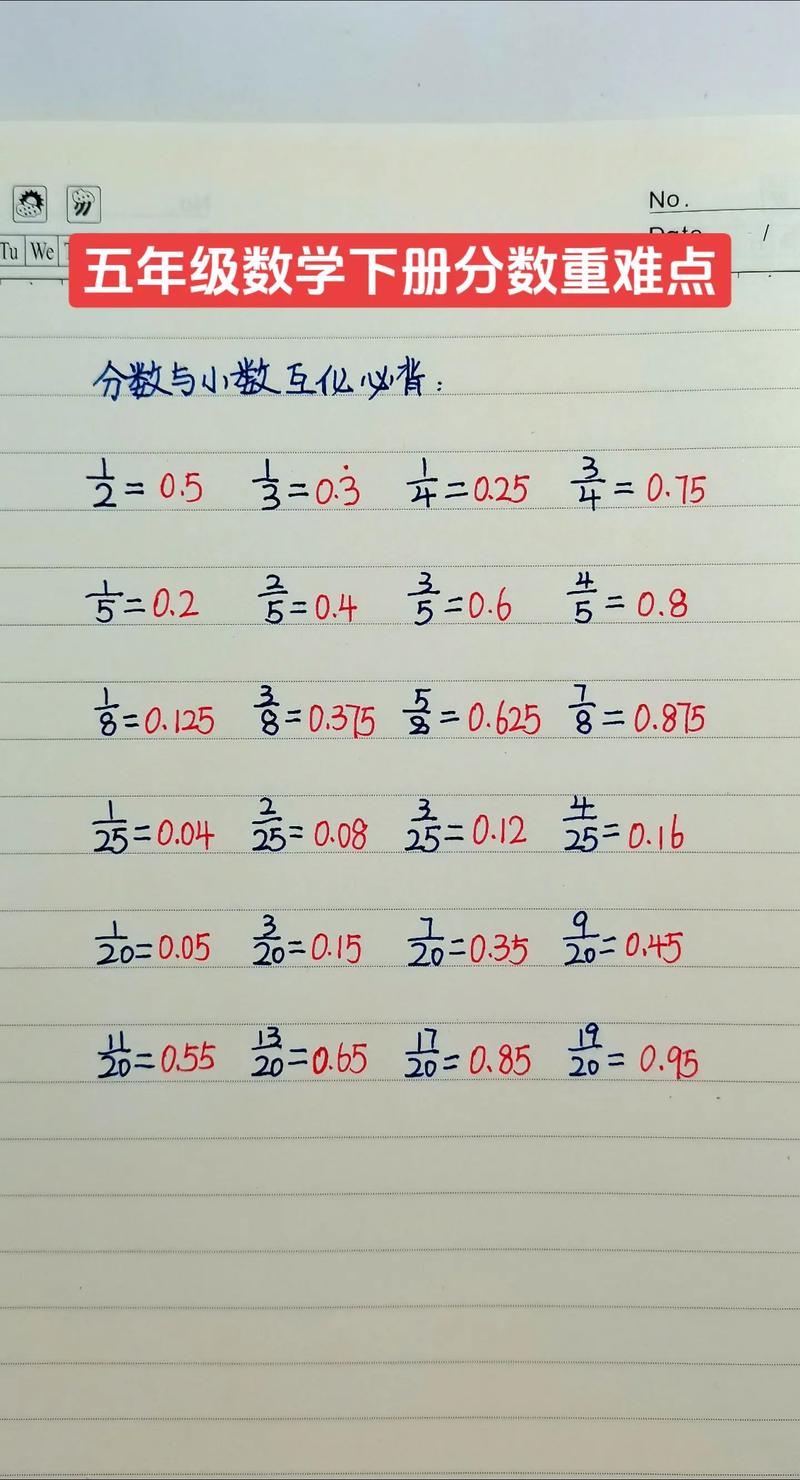 No.
Tu We
/
五年级数学下册分数重难点
分数与小数互化必背：
1/2 = 0.5 1/3 = 0.3̇ 1/4 = 0.25 3/4 = 0.75
1/5 = 0.2 2/5 = 0.4 3/5 = 0.6 4/5 = 0.8
1/8 = 0.125 3/8 = 0.375 5/8 = 0.625 7/8 = 0.875
1/25 = 0.04 2/25 = 0.08 3/25 = 0.12 4/25 = 0.16
1/20 = 0.05 3/20 = 0.15 7/20 = 0.35 9/20 = 0.45
11/20 = 0.55 13/20 = 0.65 17/20 = 0.85 19/20 = 0.95